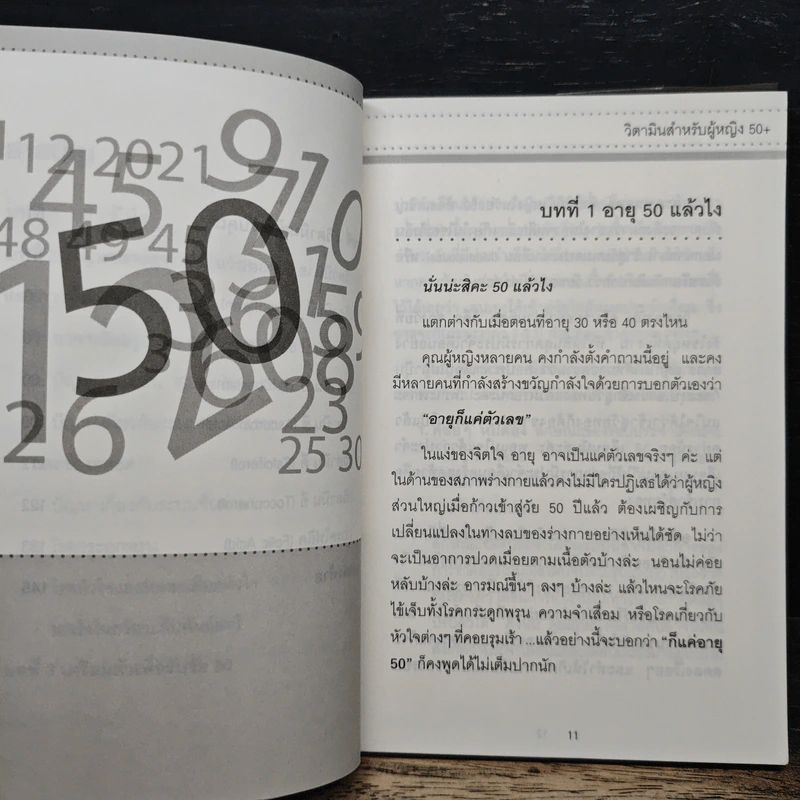 112 2021
9
45
710
48 49 45
50
1
3
50
608
2
26
23
25 30
วิตามินสำหรับผู้หญิง 50+
บทที่ 1 อายุ 50 แล้วไง
นั่นน่ะสิคะ 50 แล้วไง
แตกต่างกับเมื่อตอนที่อายุ 30 หรือ 40 ตรงไหน
คุณผู้หญิงหลายคน คงกำลังตั้งคำถามนี้อยู่ และคง
มีหลายคนที่กำลังสร้างขวัญกำลังใจด้วยการบอกตัวเองว่า
“อายุก็แค่ตัวเลข”
ในแง่ของจิตใจ อายุ อาจเป็นแค่ตัวเลขจริงๆ ค่ะ แต่
ในด้านของสภาพร่างกายแล้วคงไม่มีใครปฏิเสธได้ว่าผู้หญิง
ส่วนใหญ่เมื่อก้าวเข้าสู่วัย 50 ปีแล้ว ต้องเผชิญกับการ
เปลี่ยนแปลงในทางลบของร่างกายอย่างเห็นได้ชัด ไม่ว่า
จะเป็นอาการปวดเมื่อยตามเนื้อตัวบ้างล่ะ นอนไม่ค่อย
หลับบ้างล่ะ อารมณ์ขึ้นๆ ลงๆ บ้างล่ะ แล้วไหนจะโรคภัย
ไข้เจ็บทั้งโรคกระดูกพรุน ความจำเสื่อม หรือโรคเกี่ยวกับ
หัวใจต่างๆ ที่คอยรุมเร้า ...แล้วอย่างนี้จะบอกว่า “ก็แค่อายุ
50” ก็คงพูดได้ไม่เต็มปากนัก
11